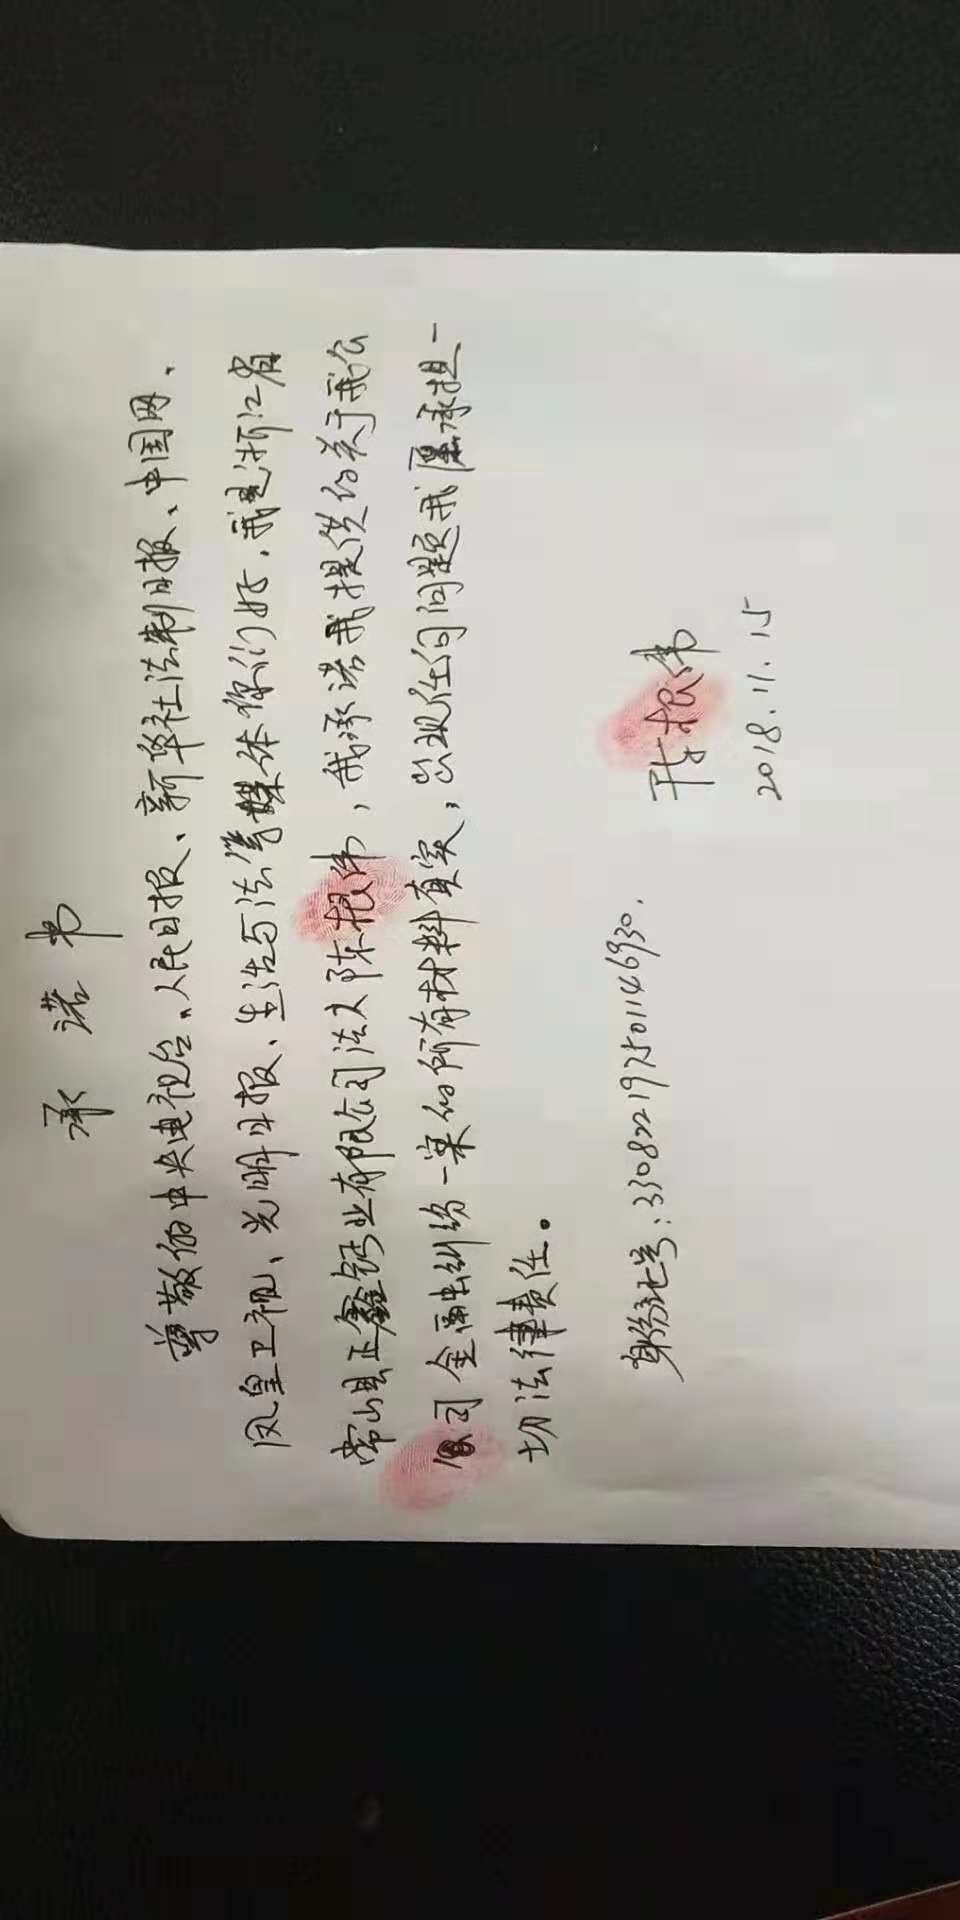 承 诺 书
尊敬的中央电视台、人民日报、新华社法制日报、中国网、
凤皇卫视、光明日报、生活与法等媒体你们好、我是浙江省
常山县正鑫钙业有限公司法人陈根伟,我承诺我提供的关于我公
司金融纠纷一案的所有材料真实,出现任何问题我愿承担一
切法律责任。
陈根伟
身份证号:330822197501146930.
2018.11.15